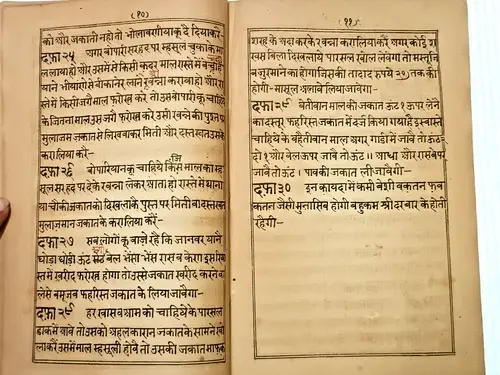 (१०)
को और जकाती नहो तो भोलावणीया कू दे दिया करे
दफ़ा २५ अगर बोपारी सरहद पर महसूल चुका के मा
ल लाया हो और उसमें से किसी कदर माल रास्ते में या स
याने भीयारो से बीकानेर लाने रवन्ना करावा हो और रा
स्ते में किसी जगे माल फरोख्त करे तो उस बापारी कू चाहिये
के जितना माल उस जगे फरोख्त करे उसी रवन्ने की पुश्त पर
मुलाजम जकात से लिखवा कर मिती और दस्तखत उसके
करालिया करें-
दफ़ा २६ बोपारियान कू चाहिये कि जिस माल का मह
सूल सरहद पर देके रवन्ना लेकर आता हो रास्ते में थाना
या चौकी जकात को दिखला के पुस्त पर मिती वा दस्तखत
मुलाजमान जकात के करालिया करें-
दफ़ा २७ सब लोगों कू वाज़े रहै कि जानवर याने
घोड़ा घोड़ी ऊंट सांढ बल भेंसा भेंस रास बकेरा इस रिया
स्त में खरीद फरोख्त होगा तो उस्से जकात खरीद करने वा
ले से बमूजब फहरिस्त जकात के लिया जावेगा-
दफ़ा २८ हर खास व आम को चाहिये के पारसल
डाक में आवे तो उसको अहलकारान जकात के सामने खो
ला करें उसमें माल महसूली होवे तो उसकी जकात माफक
(११)
शरह के अदा करके रवन्ना करालिया करें अगर कोई श
खस बिला दिखलाये पारसल खोल लेवेगा तो मस्तूजि
ब जुरमाने का होगा जिसकी तादाद रुपये २०) तक की
होगी- मासूल अलावे लिया जावेगा-
दफ़ा २९ बेतीवान माल की जकात ऊंट १ ऊपर लेने
का दस्तूर फहरिस्त जकात में दर्ज किया गया है इस वास्ते
चाहिये के बहेतीवान माल अगर गाडी में जावे तो ऊंट-
दो १ और बेल ऊपर जावे तो ऊंट ॥ आधा और रासबे पर
जावे तो ऊंट। पाव की जकात ली जावेगी-
दफ़ा ३० इन कायदा में कमी बेशी वक्तन फव
कतन जैसी मुनासिब होगी बहुकम श्री दरबार के होती
रहैगी-